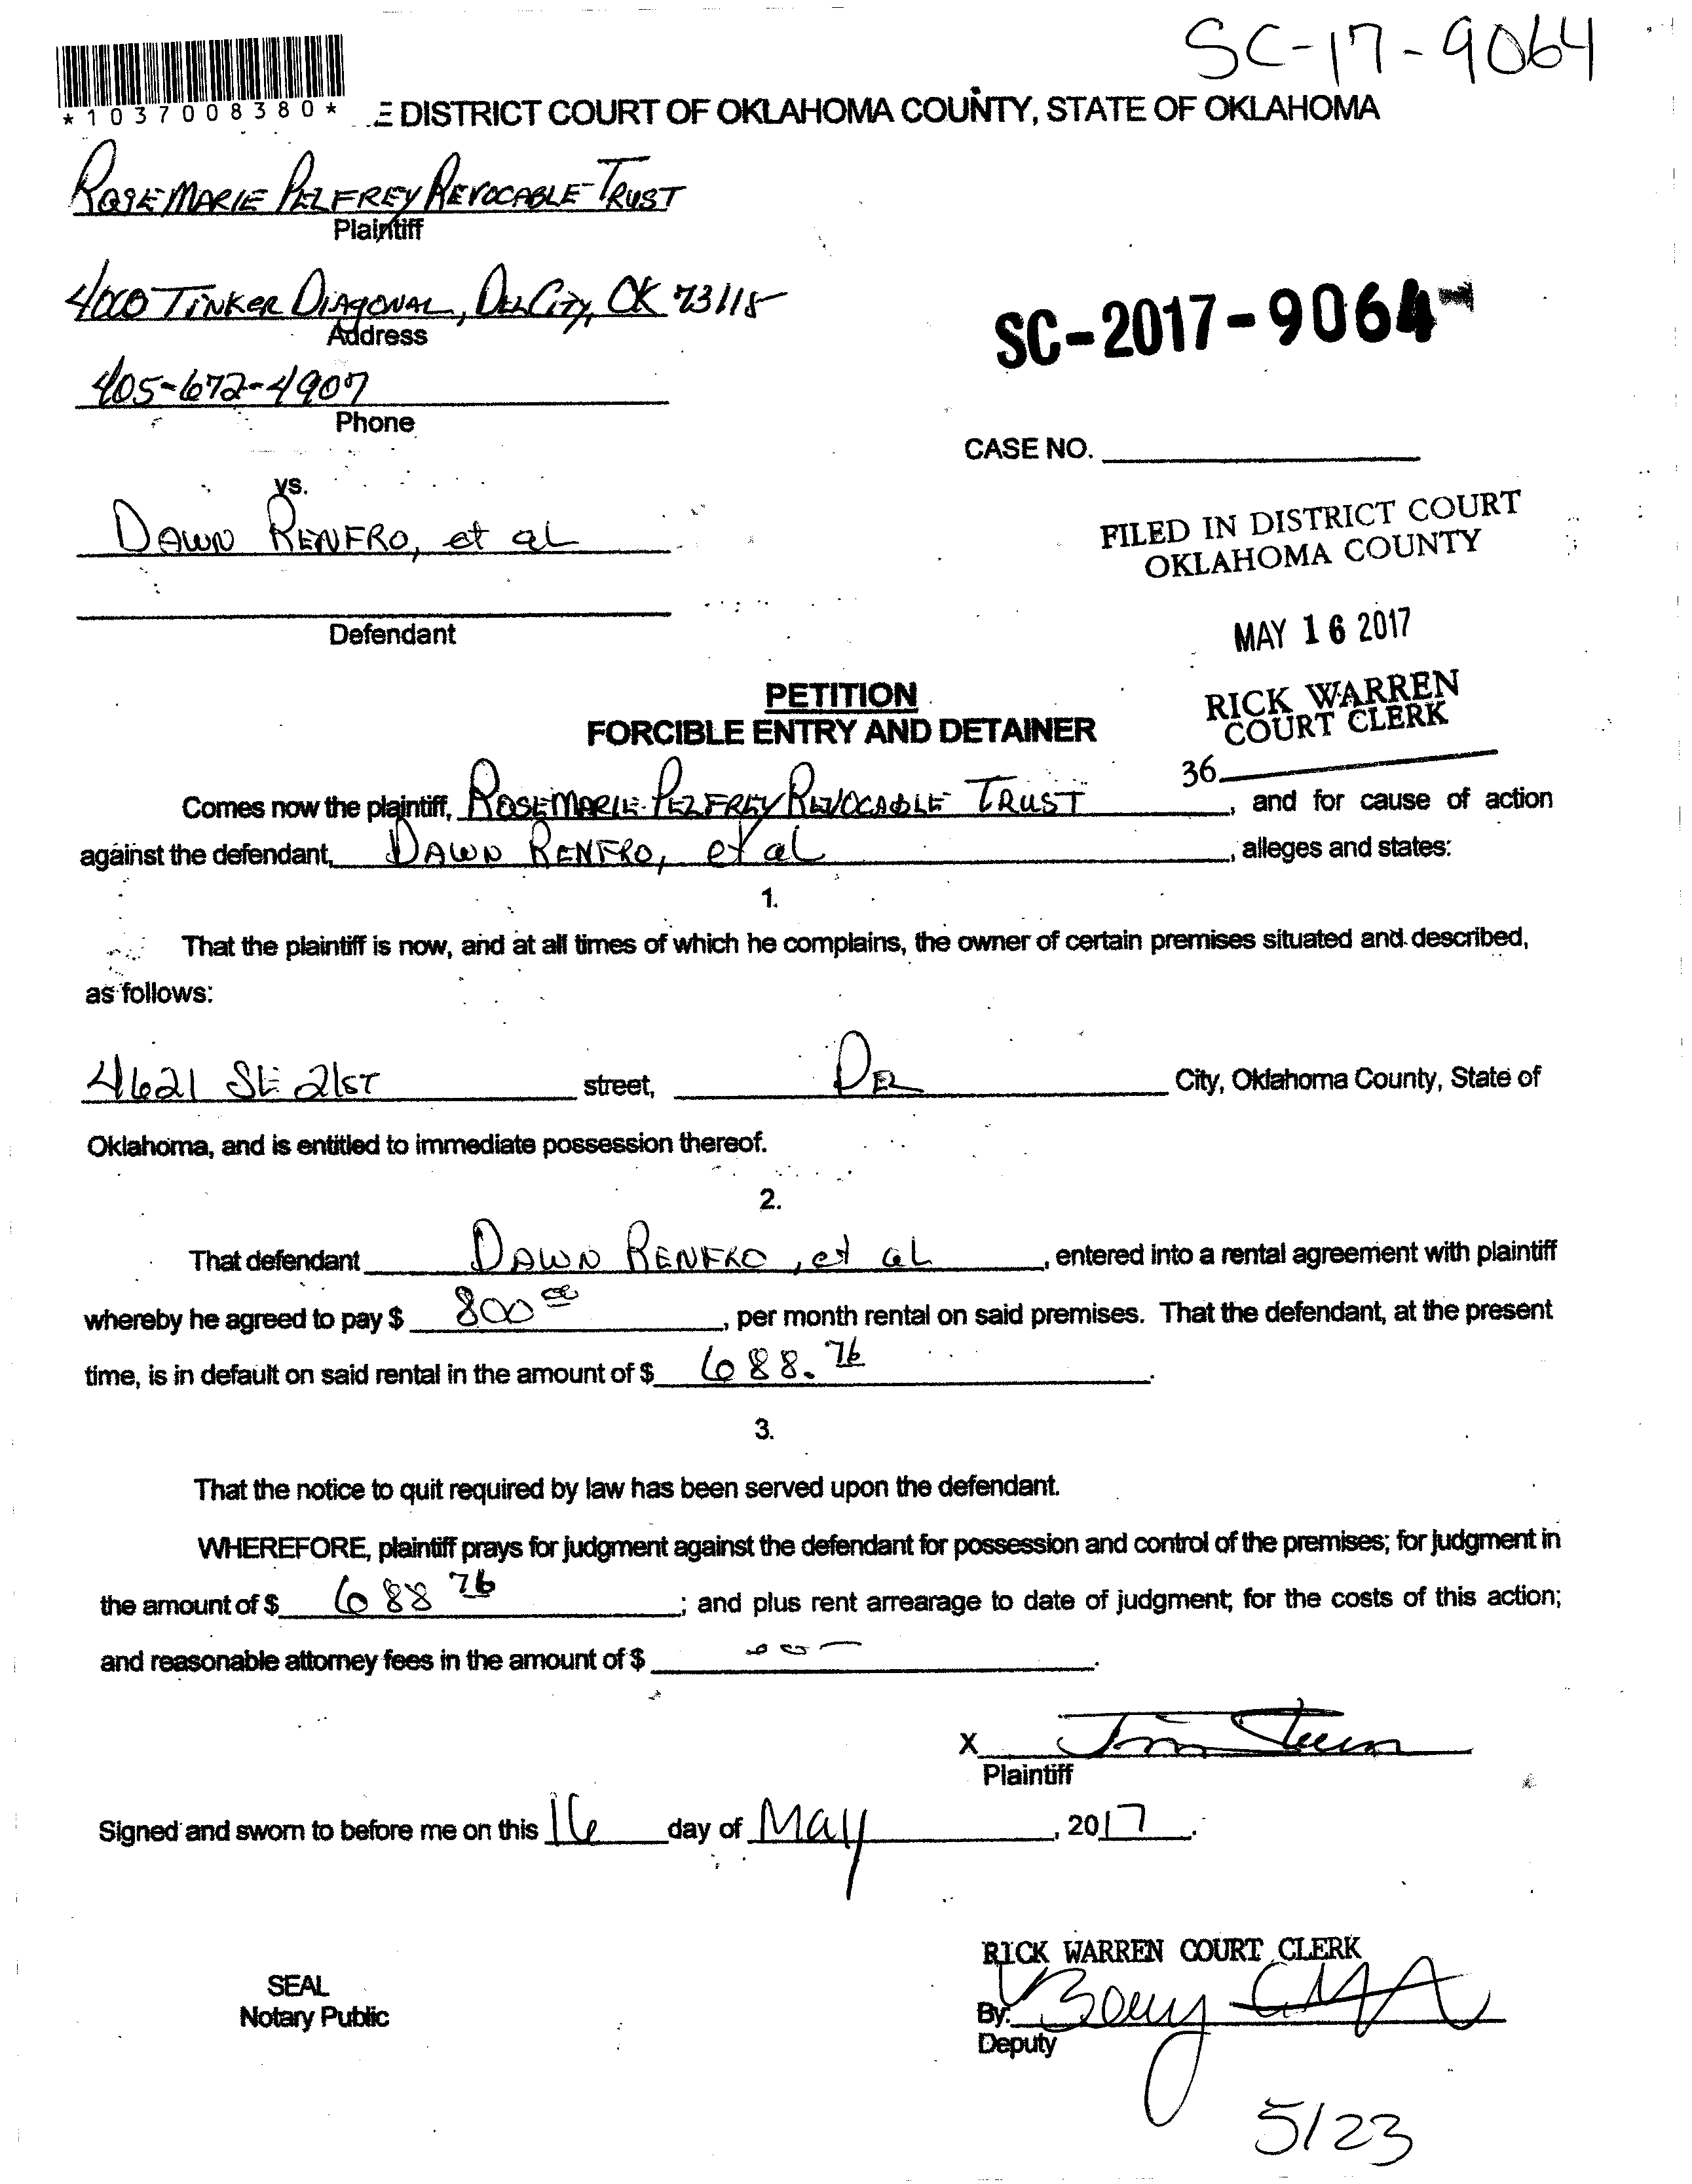 SC-17-9064
*1037008380*
E DISTRICT COURT OF OKLAHOMA COUNTY, STATE OF OKLAHOMA
ROSEMARIE PELFREY REVOCABLE TRUST
Plaintiff
4000 TINKER DIAGONAL, DEL CITY, OK 73115
Address
SC-2017-9064
405-672-4907
Phone
CASE NO.
vs.
DAWN RENFRO, et al
FILED IN DISTRICT COURT
OKLAHOMA COUNTY
Defendant
MAY 16 2017
PETITION
FORCIBLE ENTRY AND DETAINER
RICK WARREN
COURT CLERK
36
Comes now the plaintiff, ROSEMARIE PELFREY REVOCABLE TRUST, and for cause of action
against the defendant, DAWN RENFRO, et al, alleges and states:
1.
That the plaintiff is now, and at all times of which he complains, the owner of certain premises situated and described,
as follows:
4621 SE 21ST street, DEL City, Oklahoma County, State of
Oklahoma, and is entitled to immediate possession thereof.
2.
That defendant DAWN RENFRO, et al, entered into a rental agreement with plaintiff
whereby he agreed to pay $ 800 00, per month rental on said premises. That the defendant, at the present
time, is in default on said rental in the amount of $ 688.76.
3.
That the notice to quit required by law has been served upon the defendant.
WHEREFORE, plaintiff prays for judgment against the defendant for possession and control of the premises; for judgment in
the amount of $ 688 76; and plus rent arrearage to date of judgment; for the costs of this action;
and reasonable attorney fees in the amount of $
X
Plaintiff
Signed and sworn to before me on this 16 day of May, 2017.
RICK WARREN COURT CLERK
SEAL
Notary Public
By:
Deputy
5/23